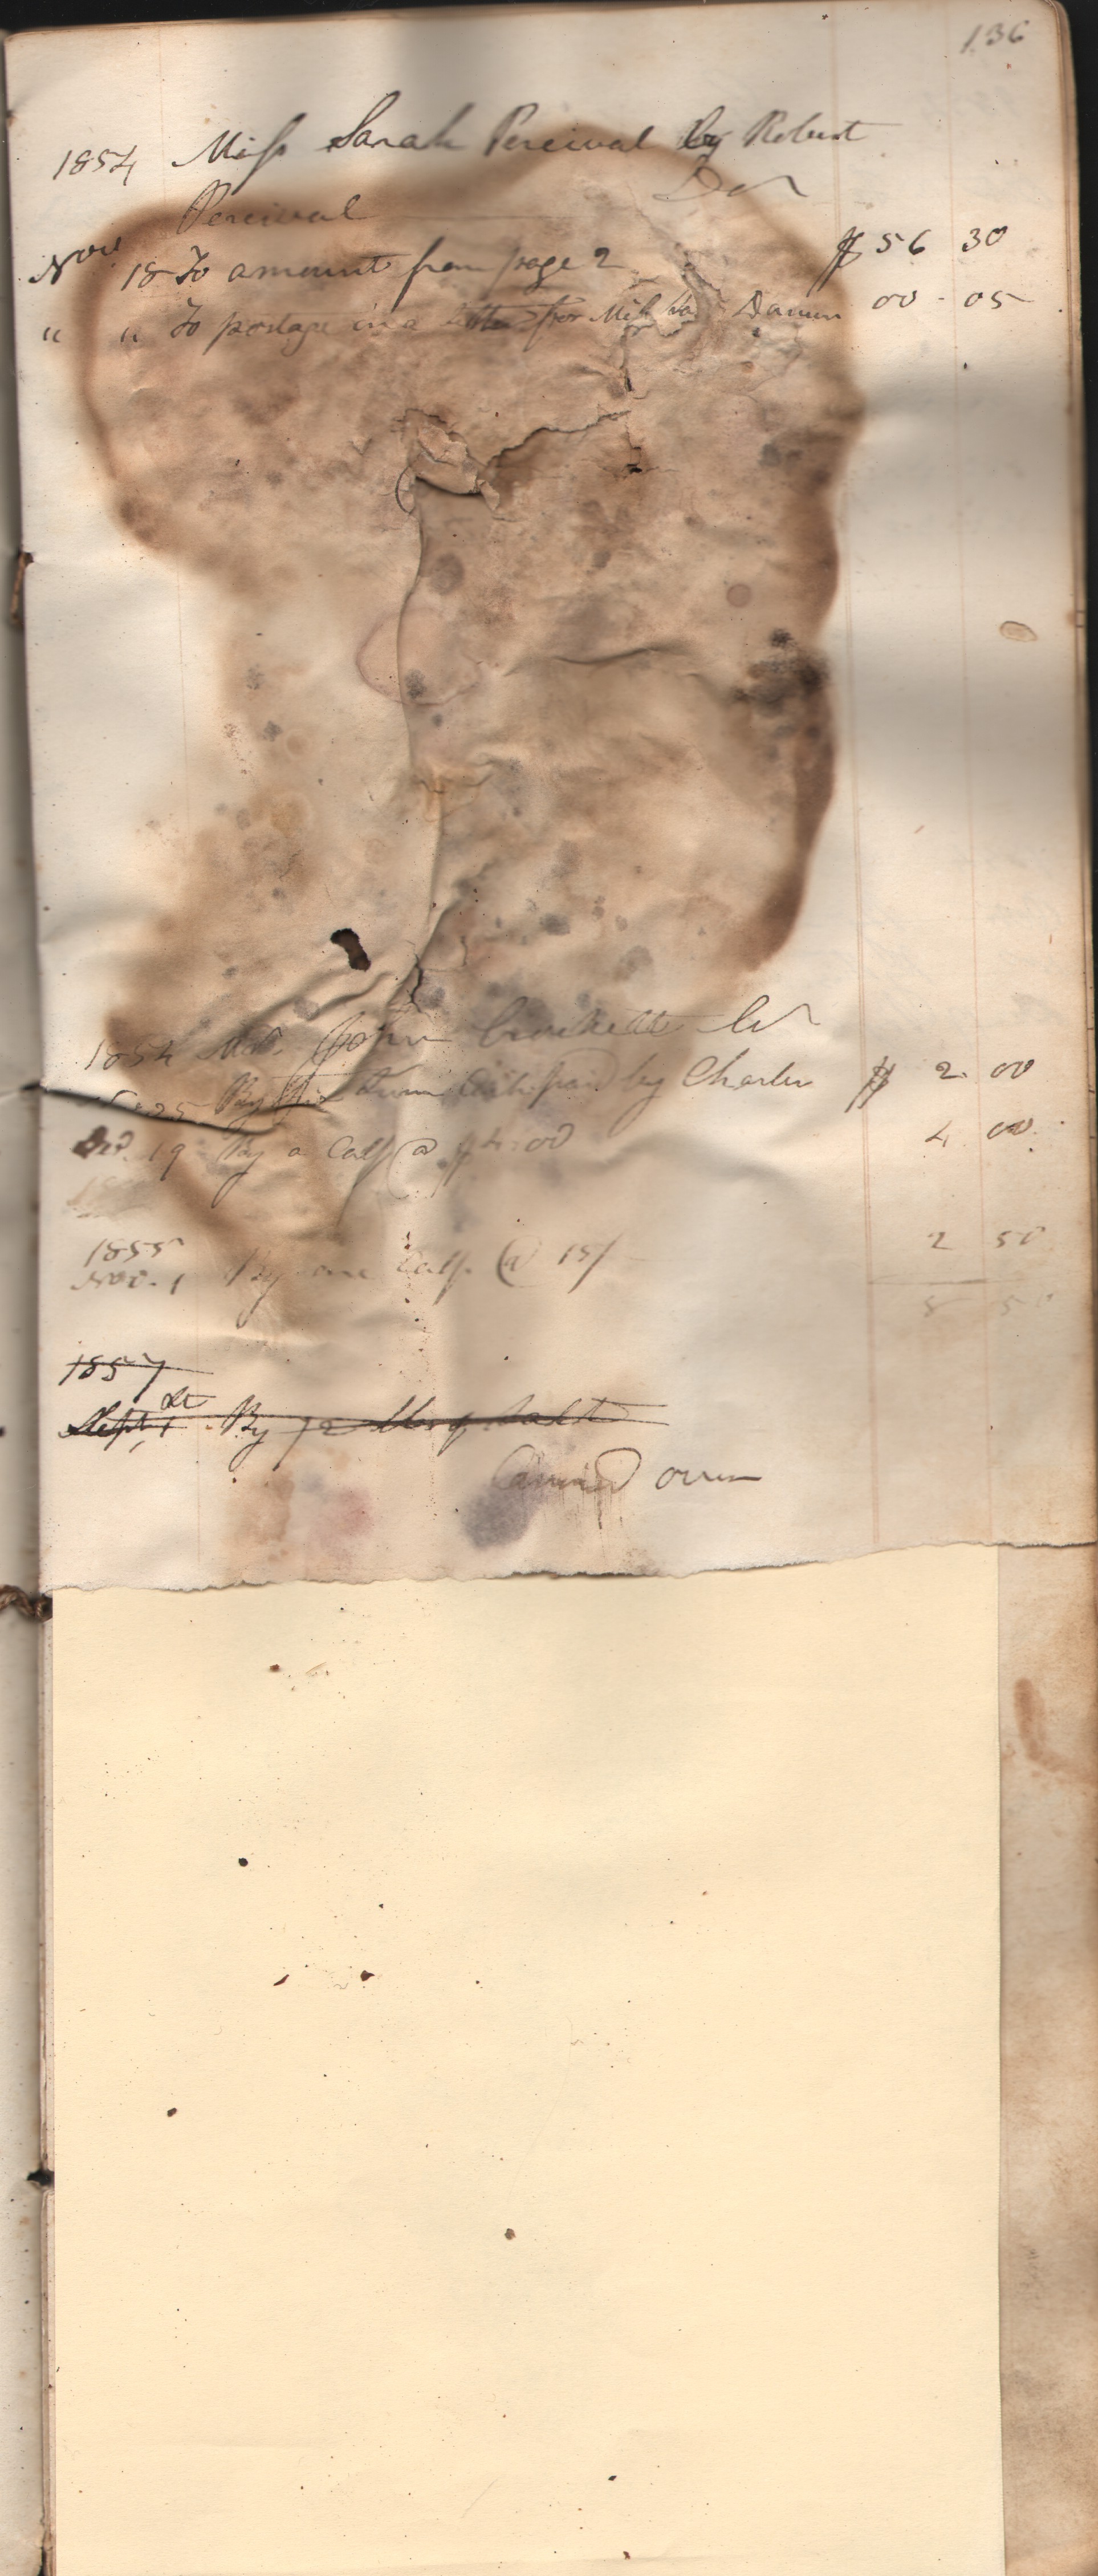 136
1854 Miss Sarah Percival by Robert
Percival Dr
Nov 18 To amount from page 2 $ 56 30
" " To postage on a letter for Miss 00 - 05
1854 Mr. John Cr
25 By Cash paid by Charles $ 2. 00
Decr. 19 By a Calf @ $4.00 4 00
1855
Nov. 1 By one Calf @ 15/- 2 50
8 50
1857
Sept, 1st By 72
Carried over